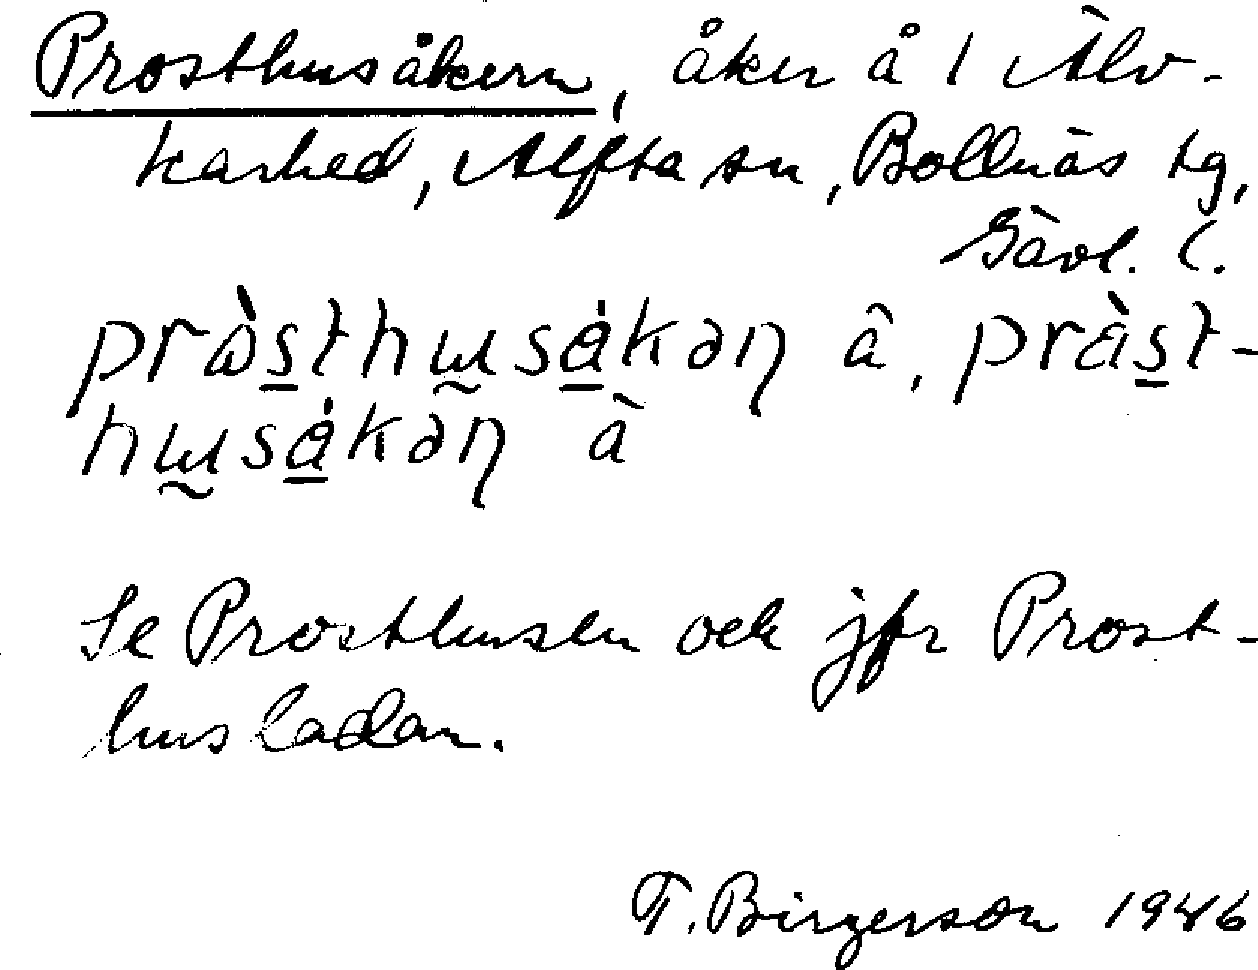 Prosthusåkern, åker å 1 Älv-
karhed, Alfta sn, Bollnäs tg,
Gävl. l.
pràsthusåkəŋ â, pràst-
husåkəŋ â
Se Prosthuslu och jfr Prost-
husladan.
T. Birgerson 1946